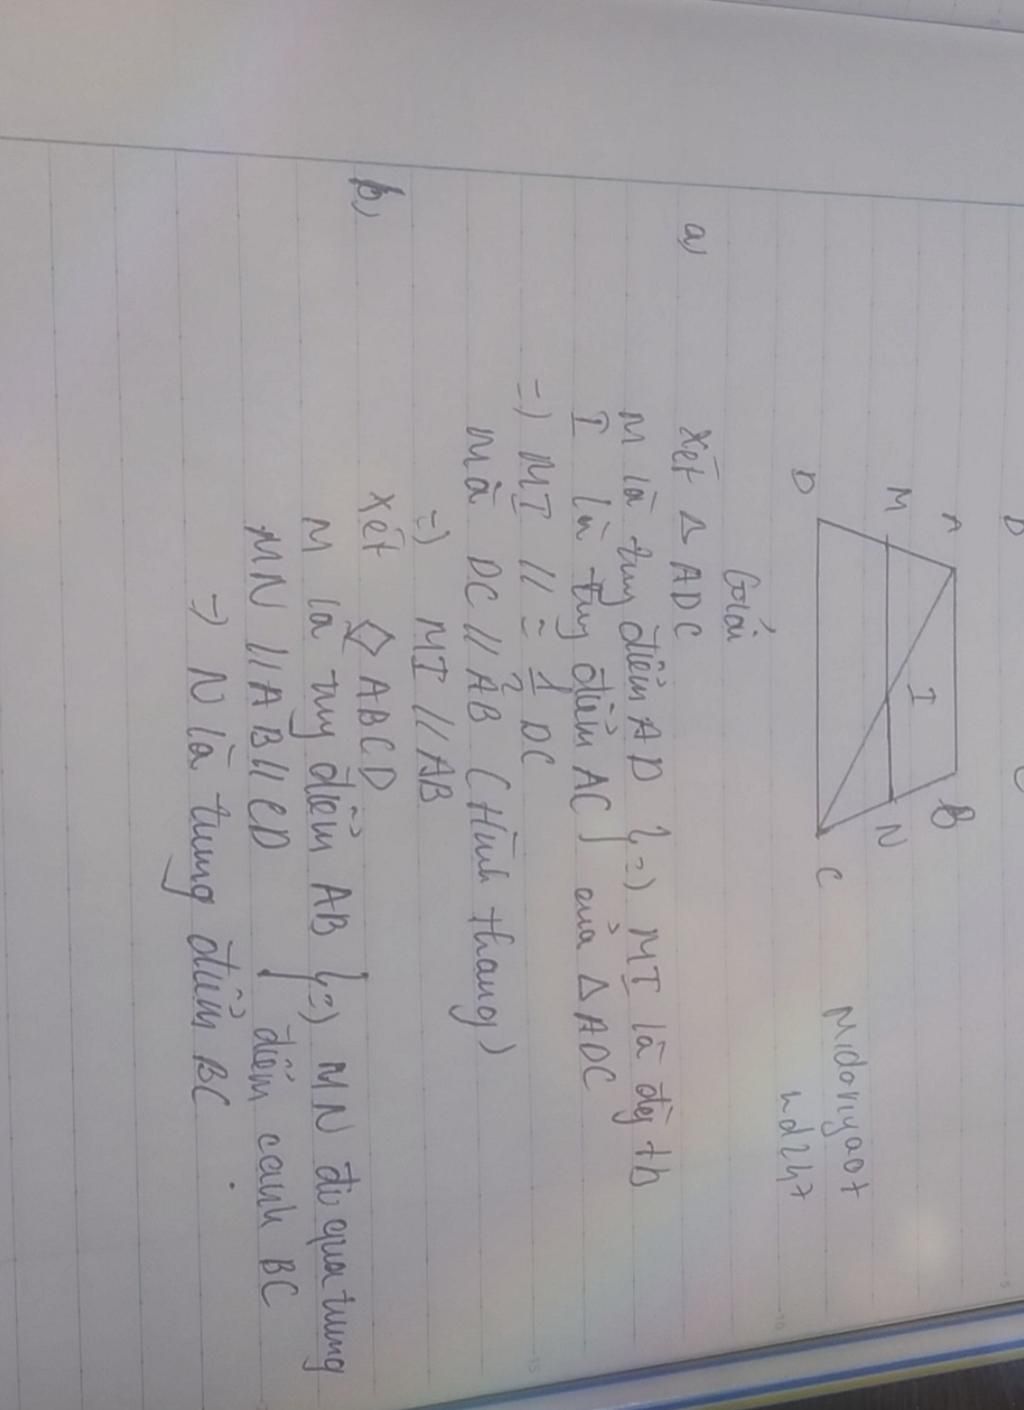 D
A
B
M
I
N
D
C
Midoriya07
nd2k7
Giải
a)
Xét Δ ADC
M là trug điểm AD } =) MI là đg tb
I là trug điểm AC } của Δ ADC
=) MI // = 1/2 DC
mà DC // AB (Hình thang)
=) MI // AB
b,
Xét ◇ ABCD
M là trug điểm AB } =) MN đi qua trung
MN // AB // CD } điểm cạnh BC
=) N là trung điểm BC.